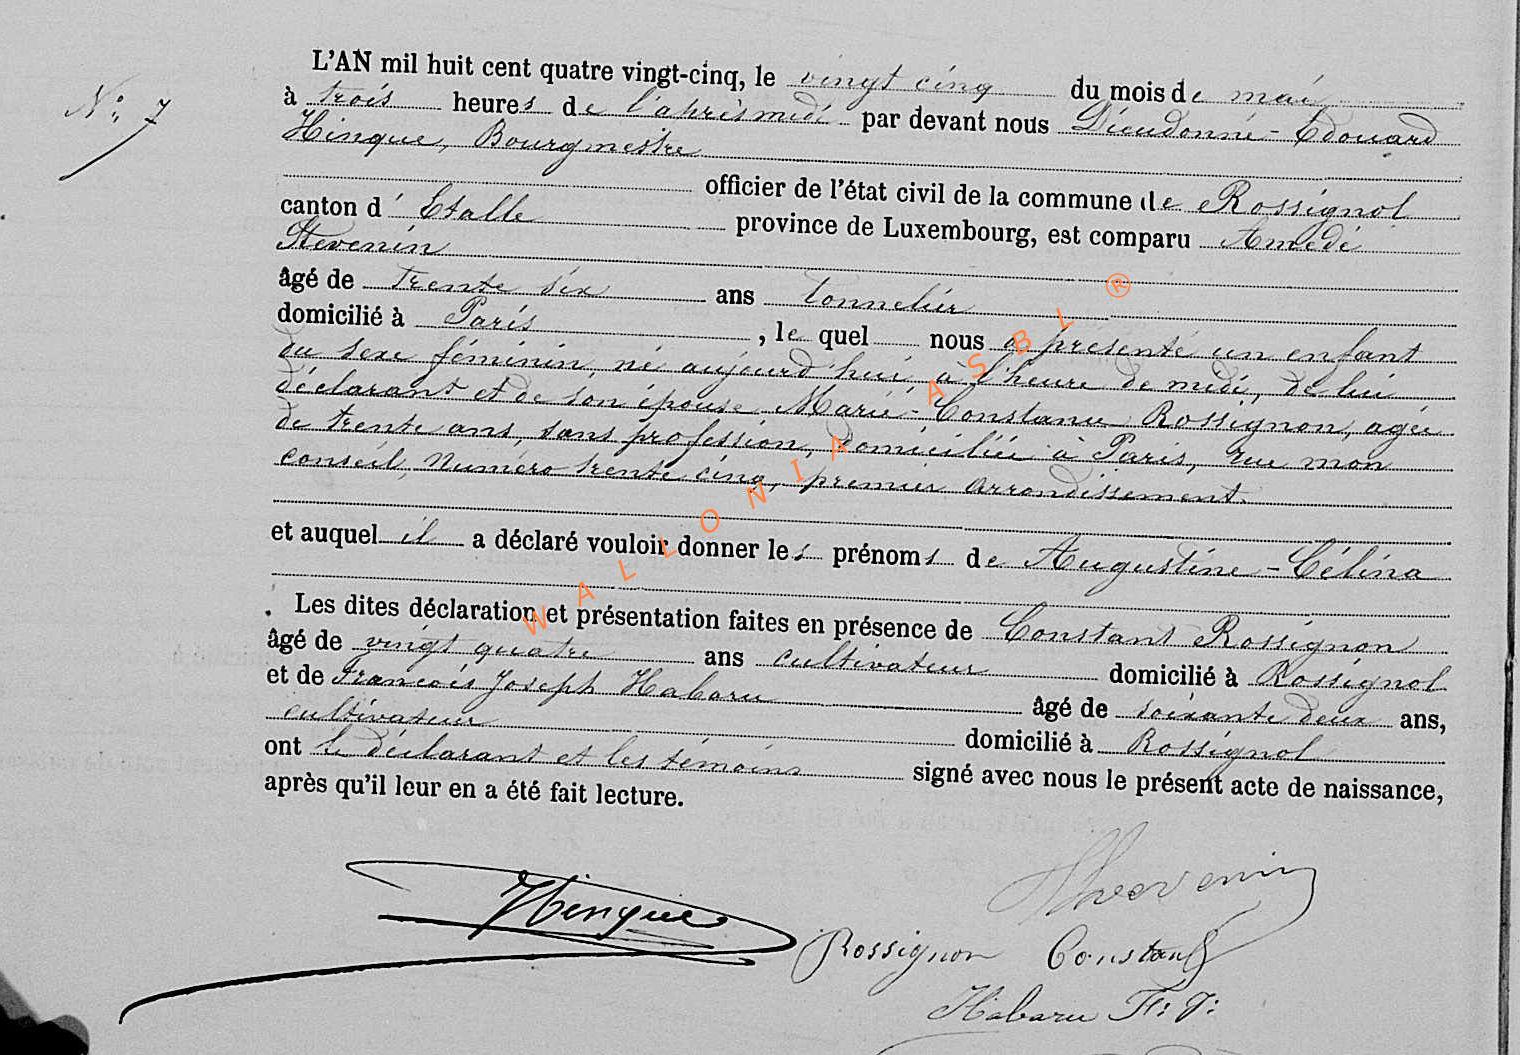 N°: 7
L'AN mil huit cent quatre vingt-cinq, le vingt cinq du mois de mai
à trois heures de l'aprèsmidi par devant nous Dieudonné-Édouard
Hinque, Bourgmestre
officier de l'état civil de la commune de Rossignol
canton d' Etalle province de Luxembourg, est comparu Amédé
Stevenin
âgé de trente six ans tonnelier
domicilié à Paris, le quel nous a présenté un enfant
du sexe féminin, né aujourd'hui à l'heure de midi, de lui
déclarant et de son épouse Marie-Constance Rossignon, agée
de trente ans, sans profession, domiciliée à Paris, rue mon
conseil, Numéro trente cinq, premier arrondissement.
et auquel il a déclaré vouloir donner les prénoms de Augustine-Célina
Les dites déclaration et présentation faites en présence de Constant Rossignon
âgé de vingt quatre ans cultivateur domicilié à Rossignol
et de François Joseph Habaru âgé de soixante deux ans,
cultivateur domicilié à Rossignol
ont le déclarant et les témoins signé avec nous le présent acte de naissance,
après qu'il leur en a été fait lecture.
Hinque
Thevenin
Rossignon Constant
Habaru F: J:
WALLONIA ASBL ®